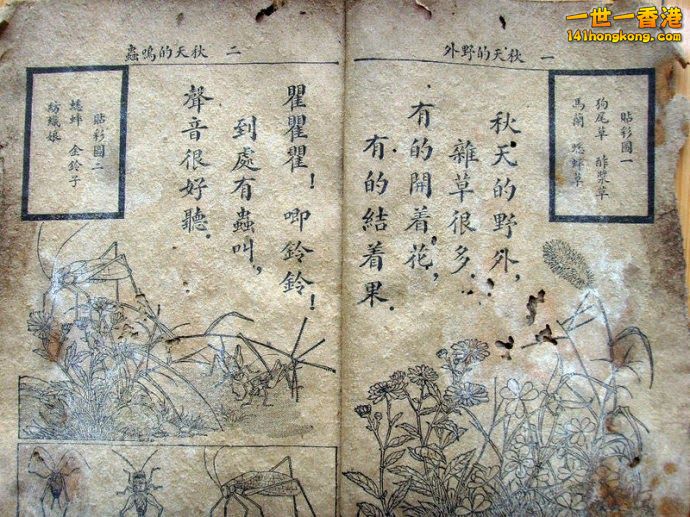 一世一香港
141hongkong.com
一 秋天的野外
貼彩圖一
狗尾草 酢漿草
馬蘭 蟋蟀草
秋天的野外，
雜草很多．
有的開着花，
有的結着果．
二 秋天的鳴蟲
瞿瞿瞿！唧鈴鈴！
到處有蟲叫，
聲音很好聽．
貼彩圖二
蟋蟀 金鈴子
紡織娘